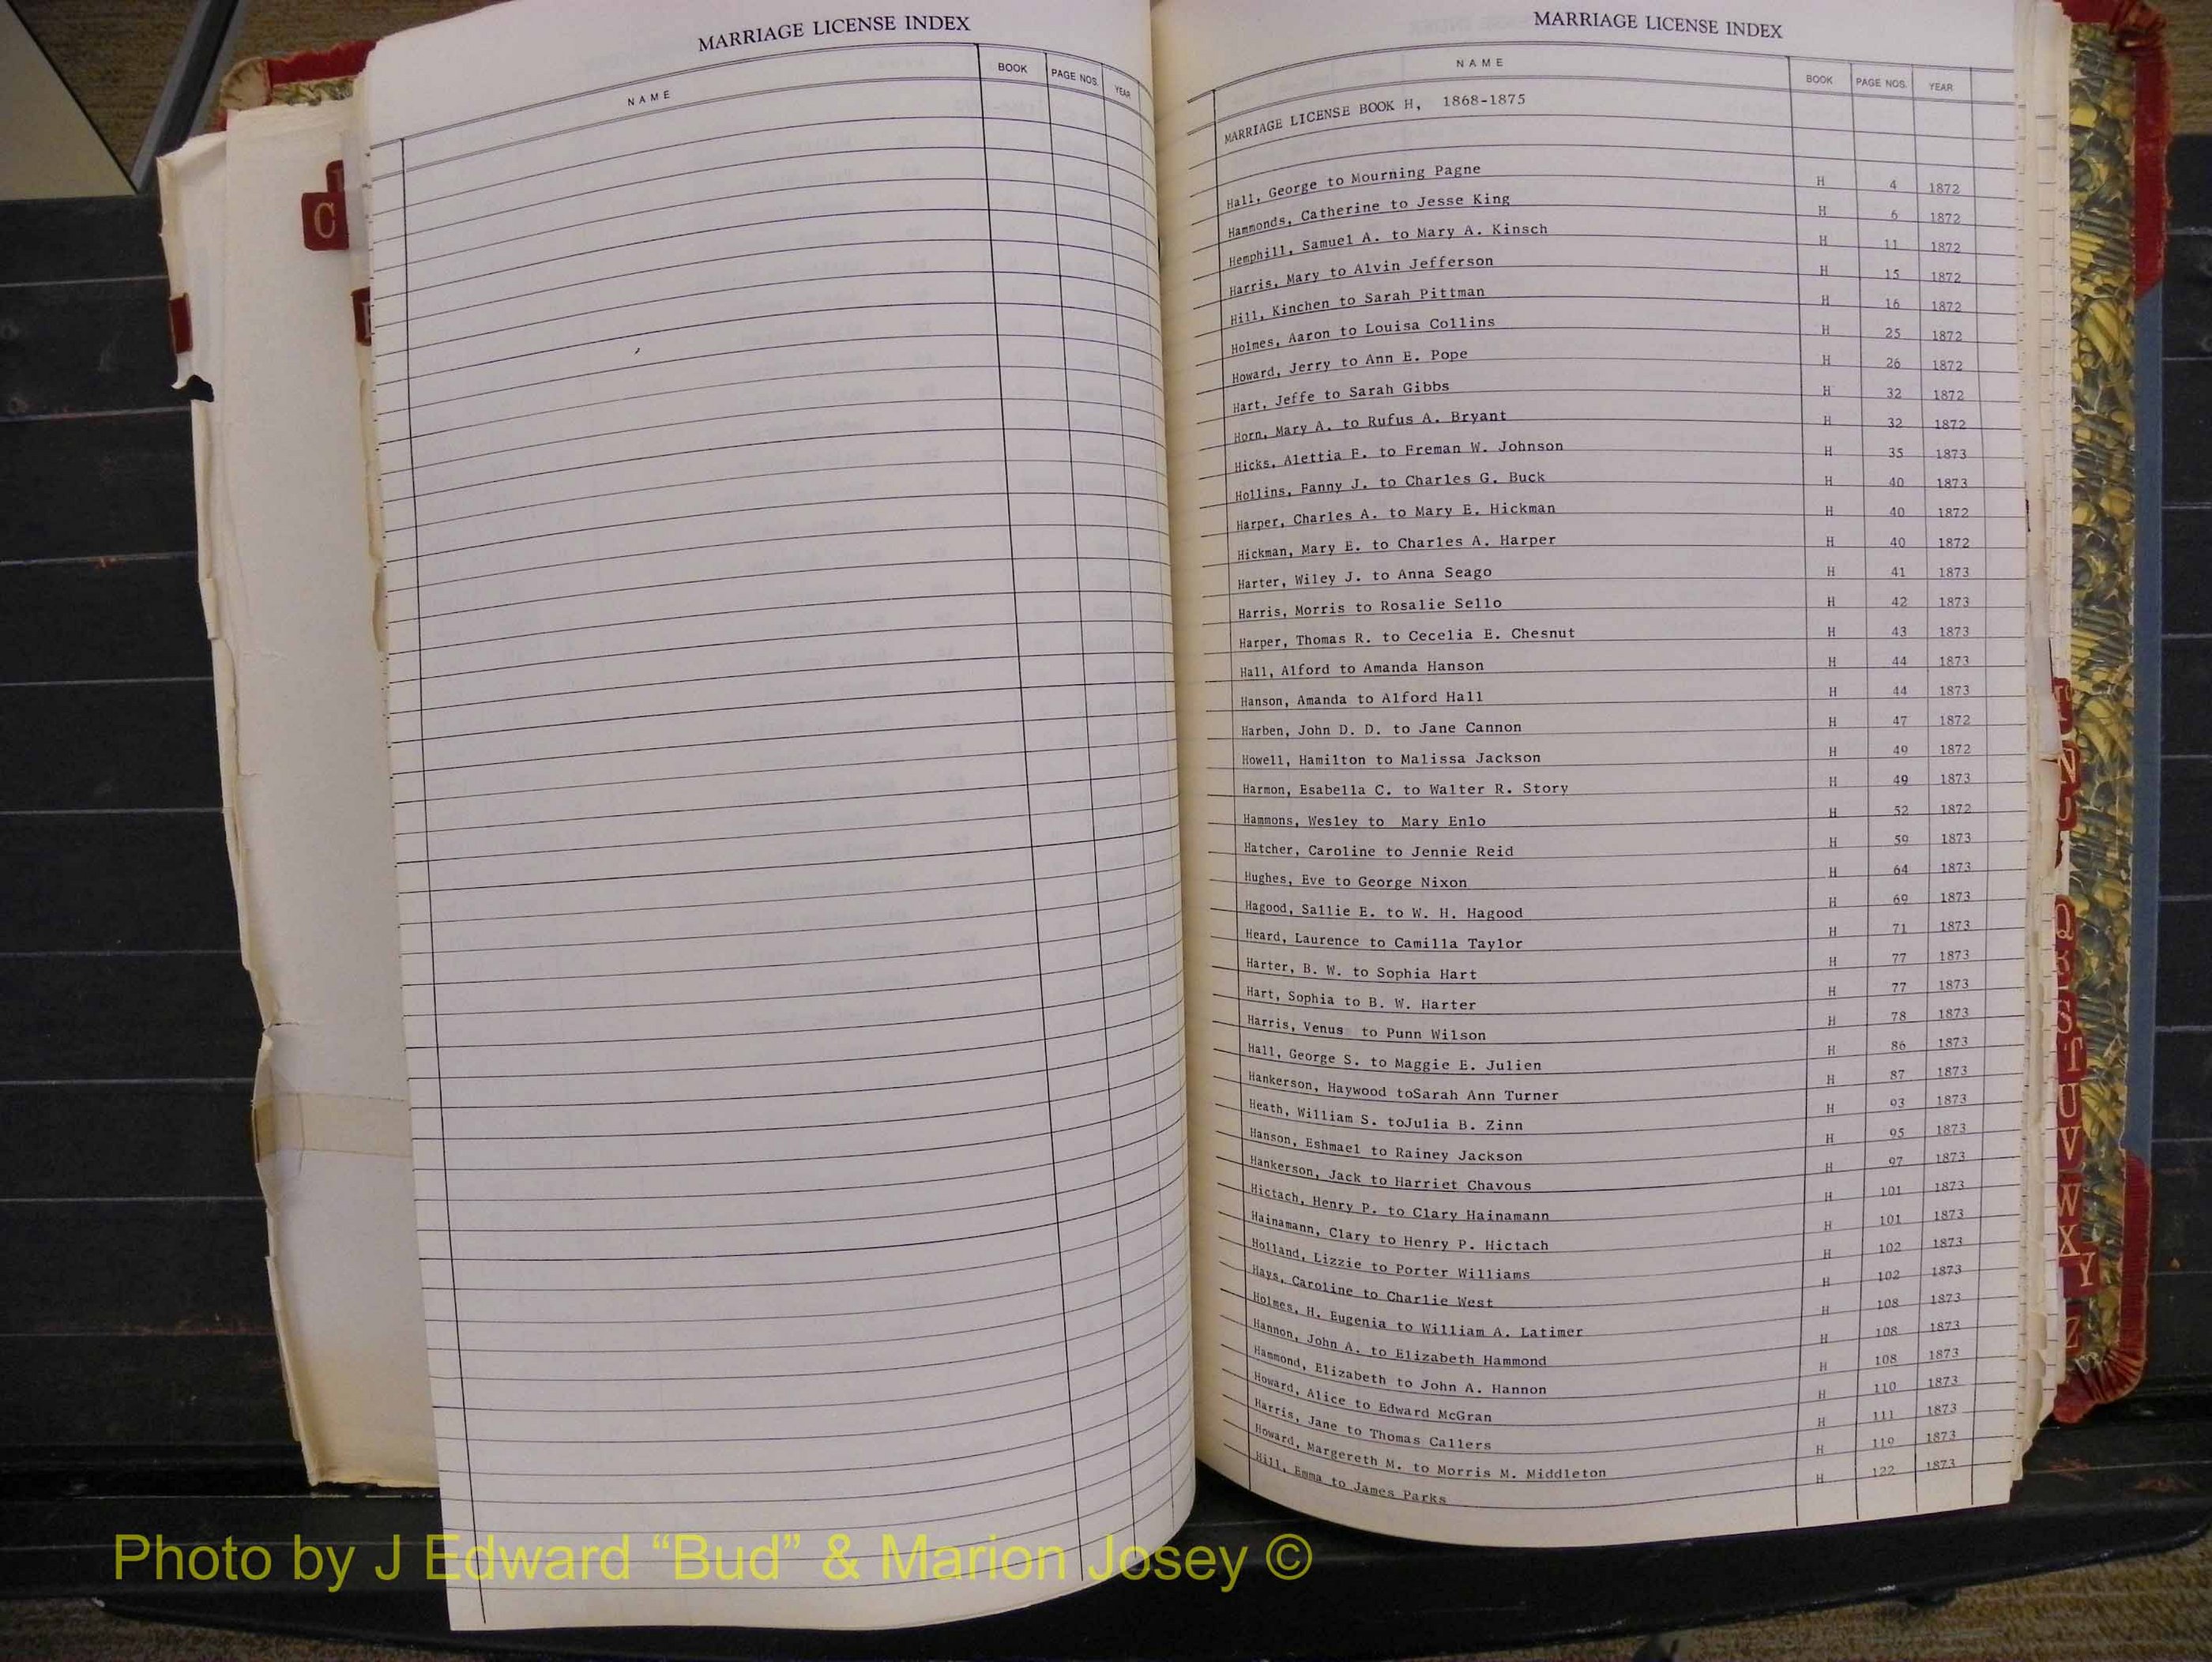 MARRIAGE LICENSE INDEX
NAME BOOK PAGE NOS. YEAR
C
MARRIAGE LICENSE INDEX
NAME BOOK PAGE NOS. YEAR
MARRIAGE LICENSE BOOK H, 1868-1875
Hall, George to Mourning Pagne H 4 1872
Hammonds, Catherine to Jesse King H 6 1872
Hemphill, Samuel A. to Mary A. Kinsch H 11 1872
Harris, Mary to Alvin Jefferson H 15 1872
Hill, Kinchen to Sarah Pittman H 16 1872
Holmes, Aaron to Louisa Collins H 25 1872
Howard, Jerry to Ann E. Pope H 26 1872
Hart, Jeffe to Sarah Gibbs H 32 1872
Horn, Mary A. to Rufus A. Bryant H 32 1872
Hicks, Alettia F. to Freman W. Johnson H 35 1873
Hollins, Fanny J. to Charles G. Buck H 40 1873
Harper, Charles A. to Mary E. Hickman H 40 1872
Hickman, Mary E. to Charles A. Harper H 40 1872
Harter, Wiley J. to Anna Seago H 41 1873
Harris, Morris to Rosalie Sello H 42 1873
Harper, Thomas R. to Cecelia E. Chesnut H 43 1873
Hall, Alford to Amanda Hanson H 44 1873
Hanson, Amanda to Alford Hall H 44 1873
Harben, John D. D. to Jane Cannon H 47 1872
Howell, Hamilton to Malissa Jackson H 49 1872
Harmon, Esabella C. to Walter R. Story H 49 1873
Hammons, Wesley to Mary Enlo H 52 1872
Hatcher, Caroline to Jennie Reid H 59 1873
Hughes, Eve to George Nixon H 64 1873
Hagood, Sallie E. to W. H. Hagood H 69 1873
Heard, Laurence to Camilla Taylor H 71 1873
Harter, B. W. to Sophia Hart H 77 1873
Hart, Sophia to B. W. Harter H 77 1873
Harris, Venus to Punn Wilson H 78 1873
Hall, George S. to Maggie E. Julien H 86 1873
Hankerson, Haywood toSarah Ann Turner H 87 1873
Heath, William S. toJulia B. Zinn H 93 1873
Hanson, Eshmael to Rainey Jackson H 95 1873
Hankerson, Jack to Harriet Chavous H 97 1873
Hictach, Henry P. to Clary Hainamann H 101 1873
Hainamann, Clary to Henry P. Hictach H 101 1873
Holland, Lizzie to Porter Williams H 102 1873
Hays, Caroline to Charlie West H 102 1873
Holmes, H. Eugenia to William A. Latimer H 108 1873
Hannon, John A. to Elizabeth Hammond H 108 1873
Hammond, Elizabeth to John A. Hannon H 108 1873
Howard, Alice to Edward McGran H 110 1873
Harris, Jane to Thomas Callers H 111 1873
Howard, Margereth M. to Morris M. Middleton H 119 1873
Hill, Emma to James Parks H 122 1873
N
Q
R
S
T
U
V
W
X
Y
Z
Photo by J Edward “Bud” & Marion Josey ©